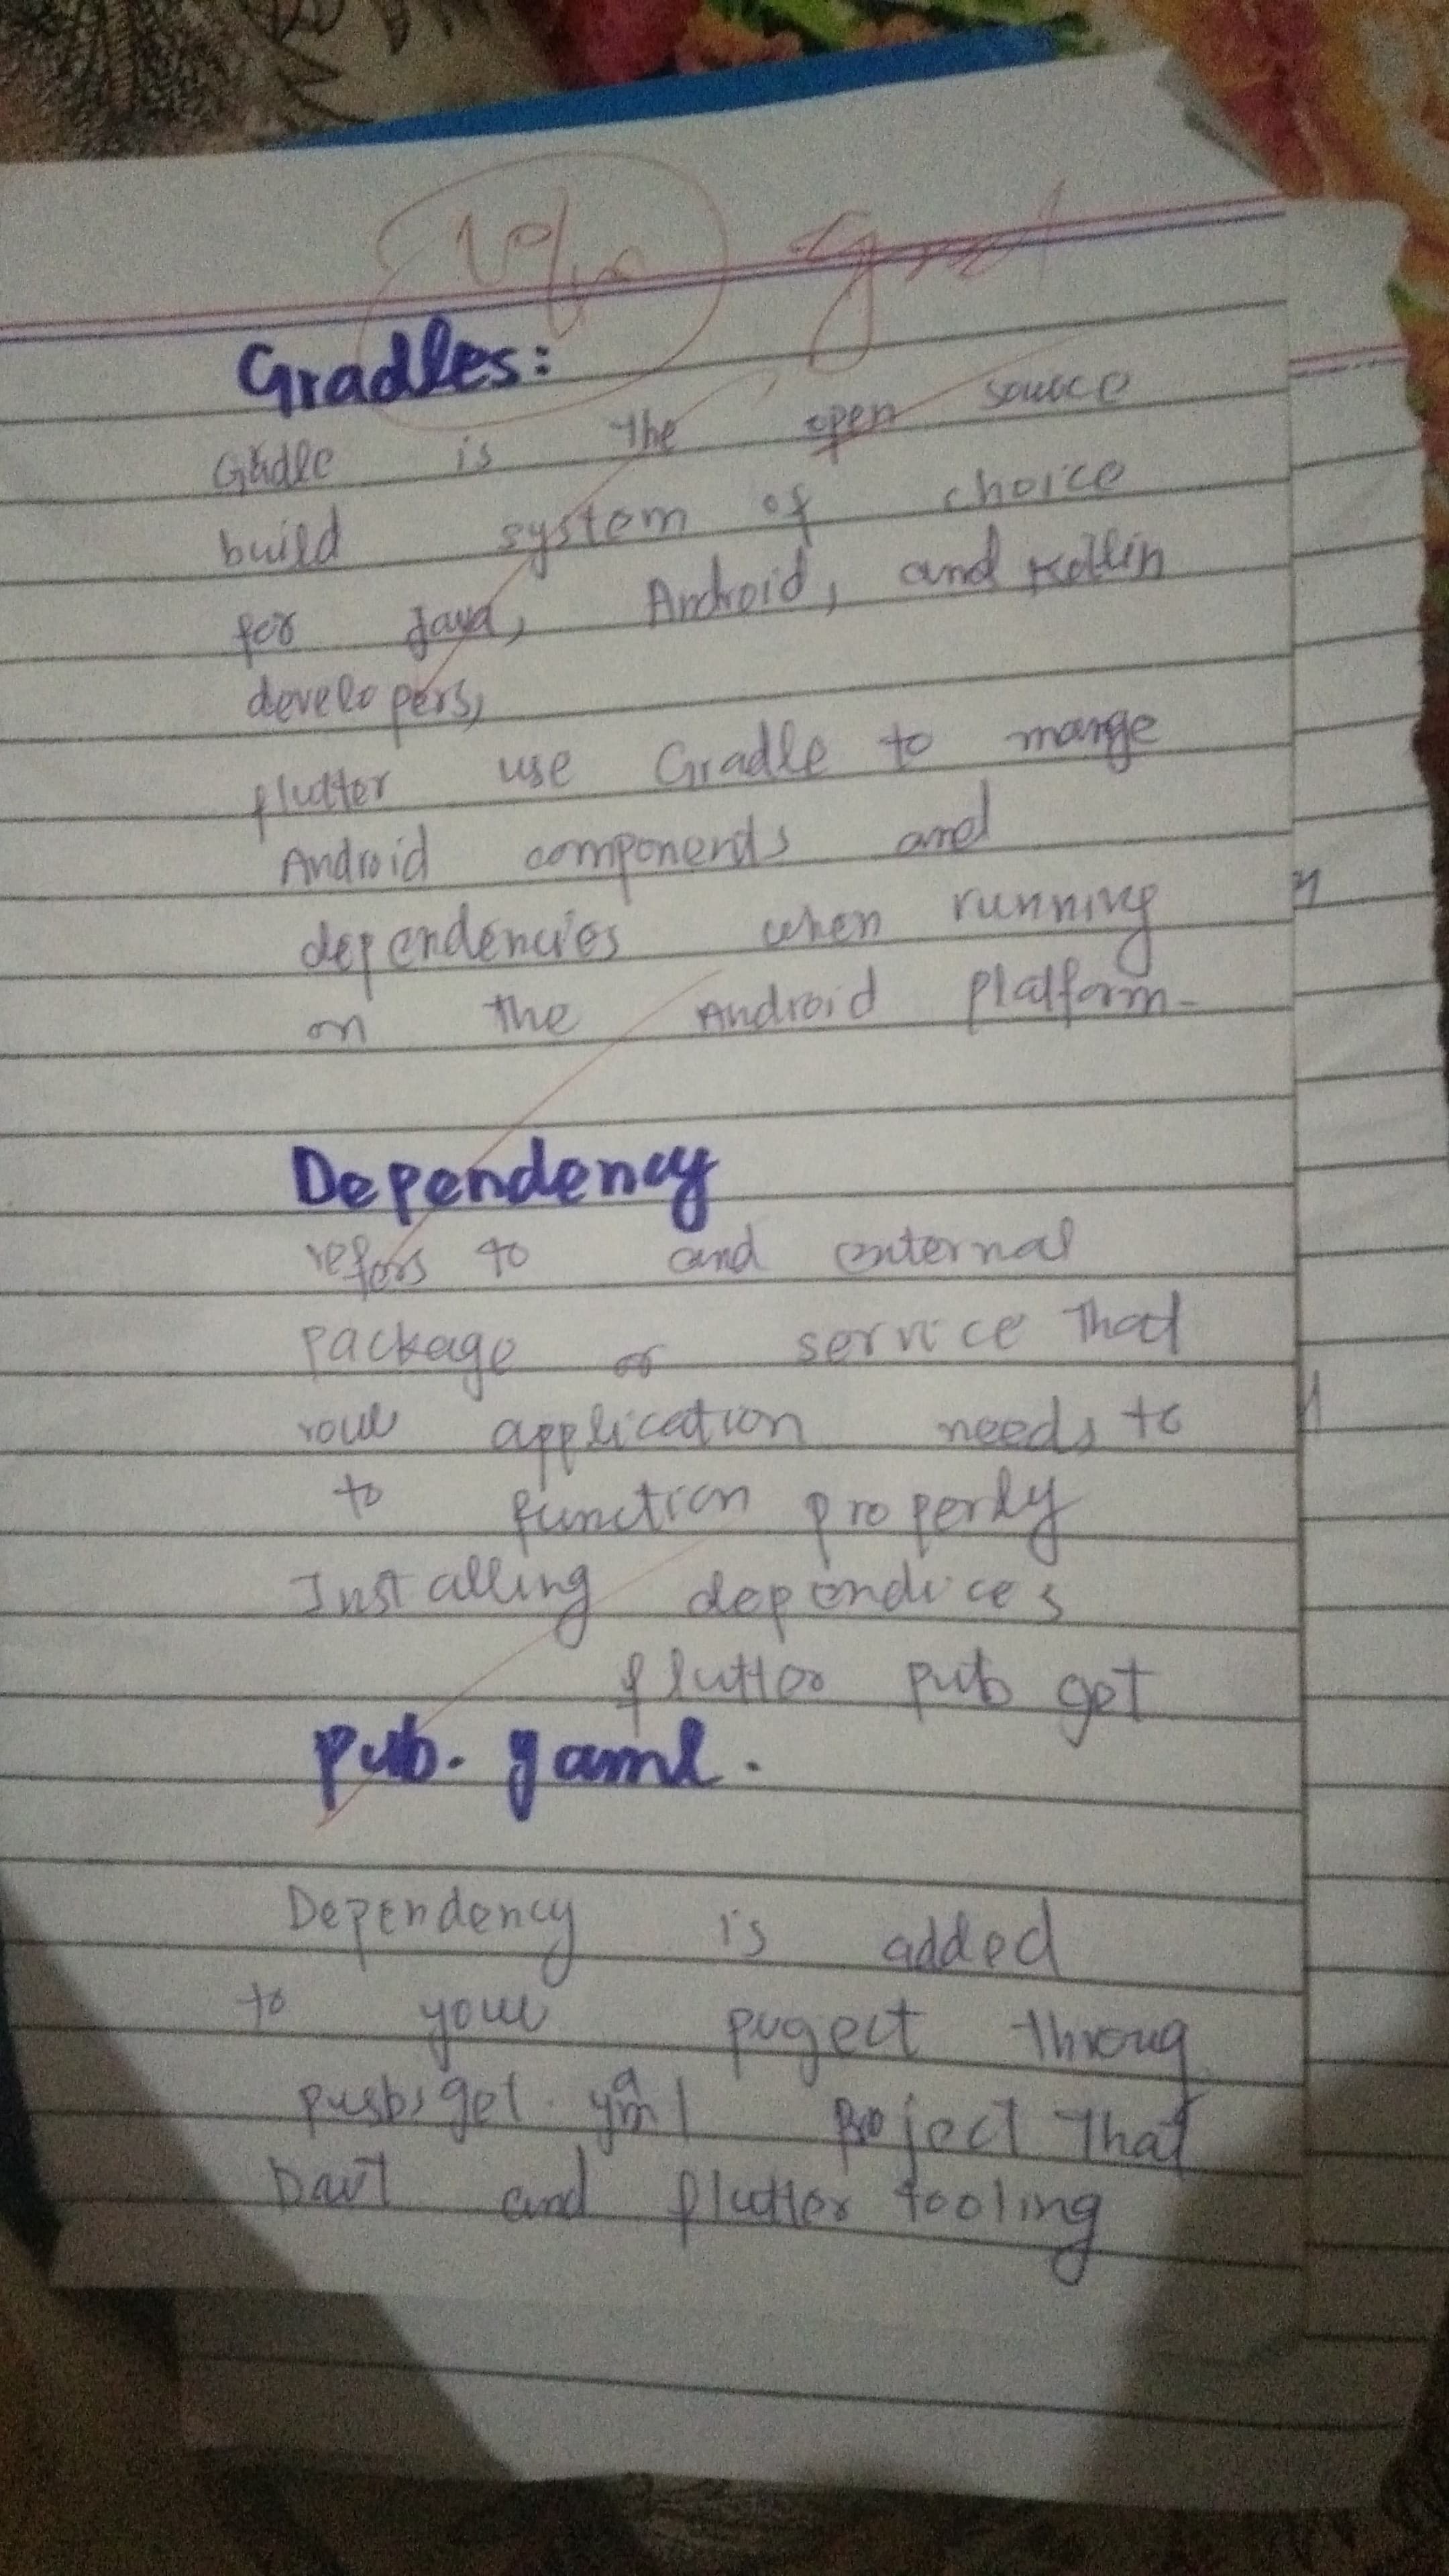 10/10 good
Gradles:
Gradle is the open source
build system of choice
for Java, Android, and Kotlin
developers,
flutter use Gradle to mange
Android components and
dependencies when running
on the Android Platform-
Dependency
refers to and external
package or service That
your application needs to
to function properly
Installing dependices
flutter pub get
pub. yaml.
Dependency is added
to your pugect throug
project That
Dart and flutter tooling